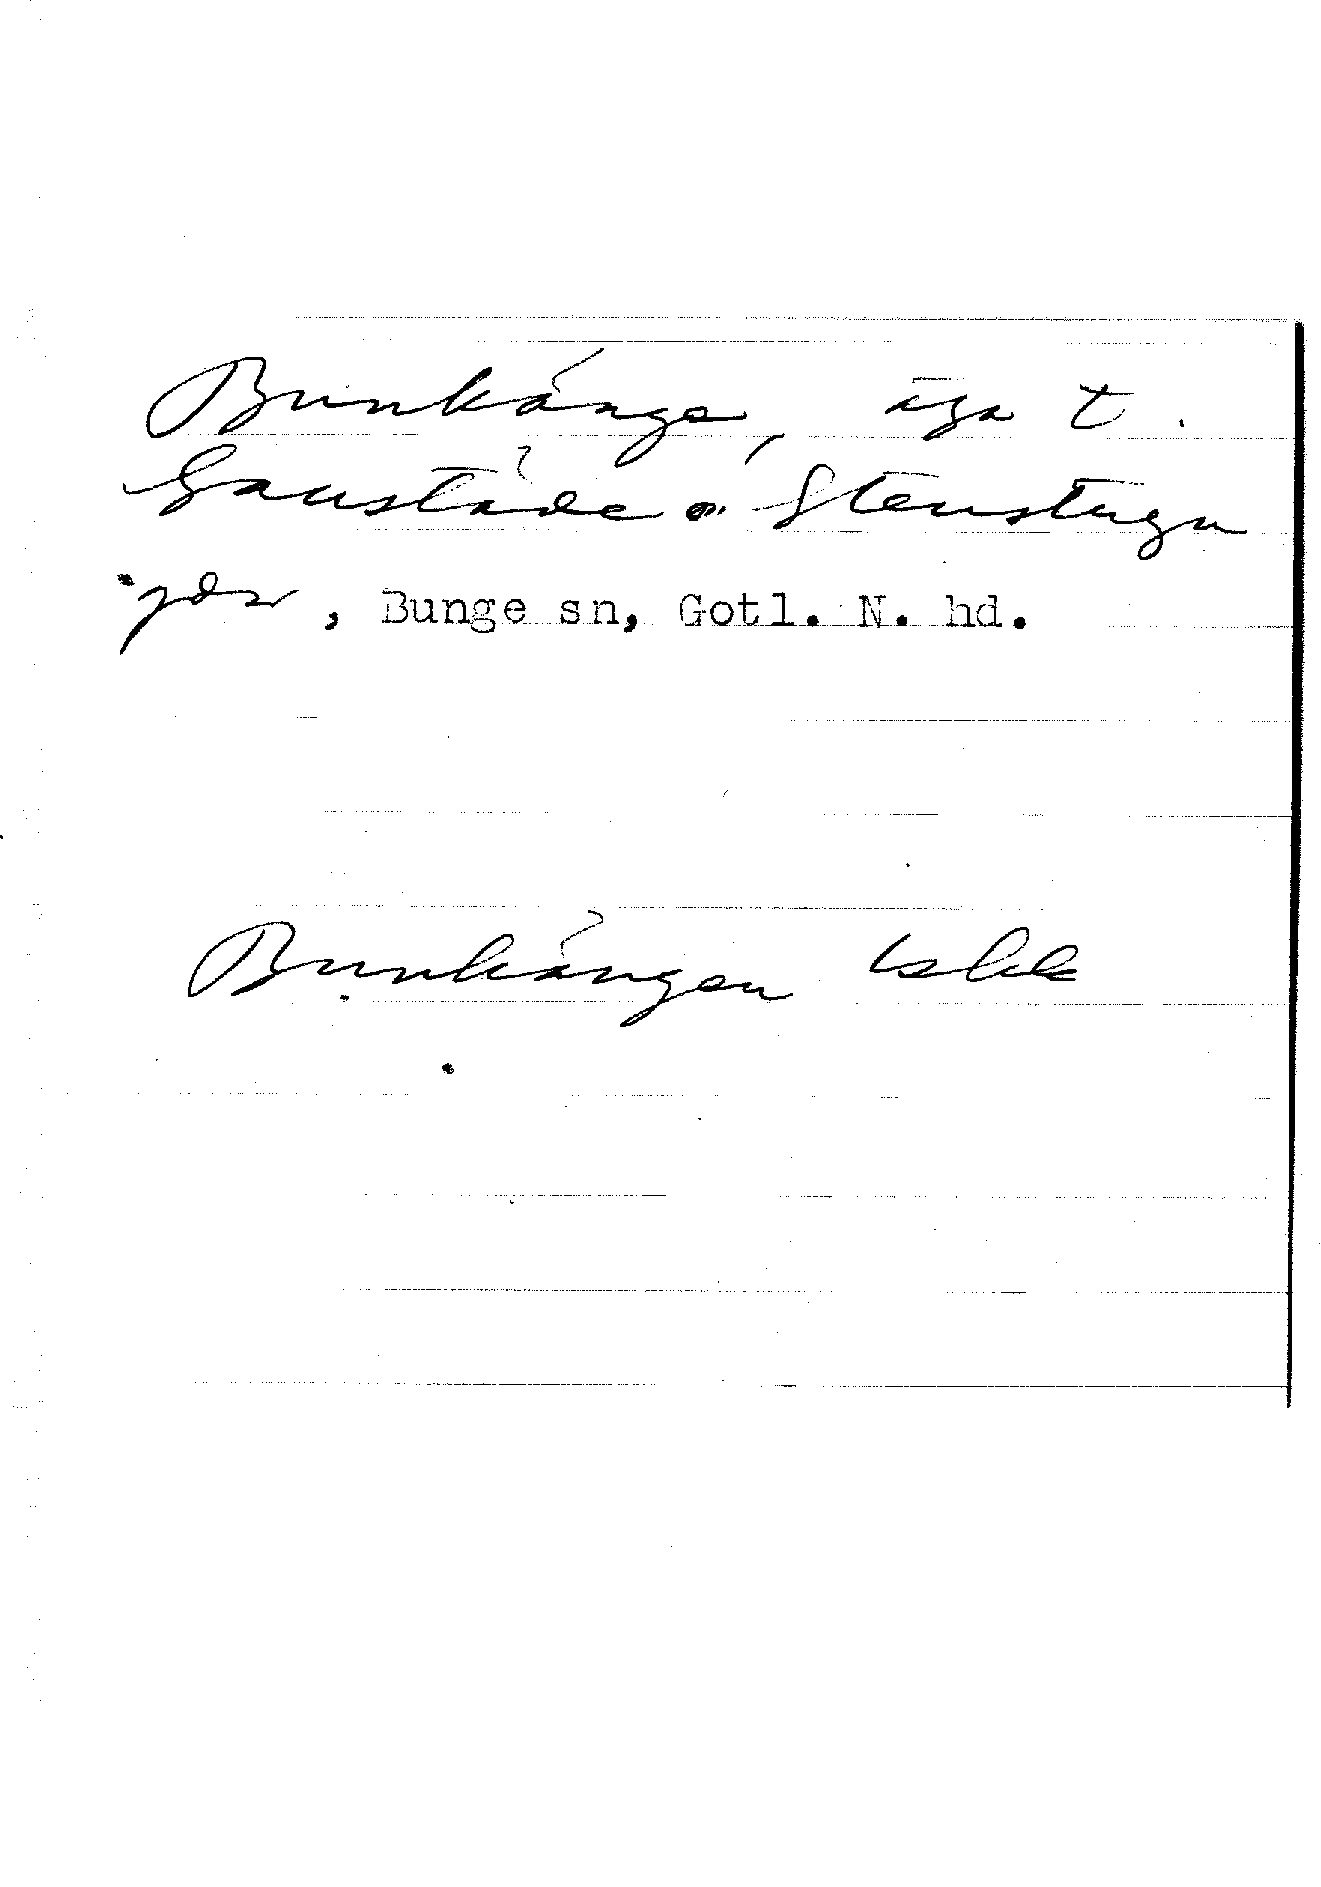 Bunkänge, äga t.
Gaustäde o. Stenstugu
gdar, Bunge sn, Gotl. N. hd.
Bunkängen